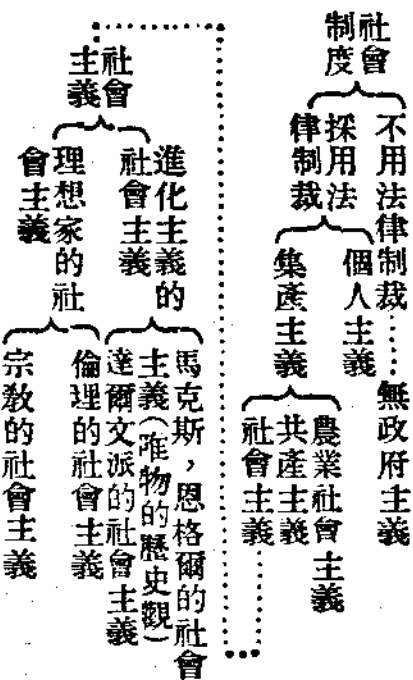 社會
制度
不用法律制裁……無政府主義
採用法
律制裁
個人主義
集產主義
農業社會主義
共產主義
社會主義
社會
主義
進化主義的
社會主義
馬克斯，恩格爾的社會
主義（唯物的歷史觀）
達爾文派的社會主義
理想家的社
會主義
倫理的社會主義
宗教的社會主義